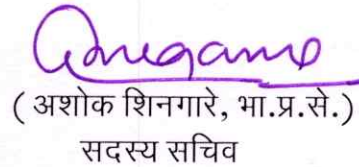 ( अशोक शिनगारे, भा.प्र.से.)
सदस्य सचिव